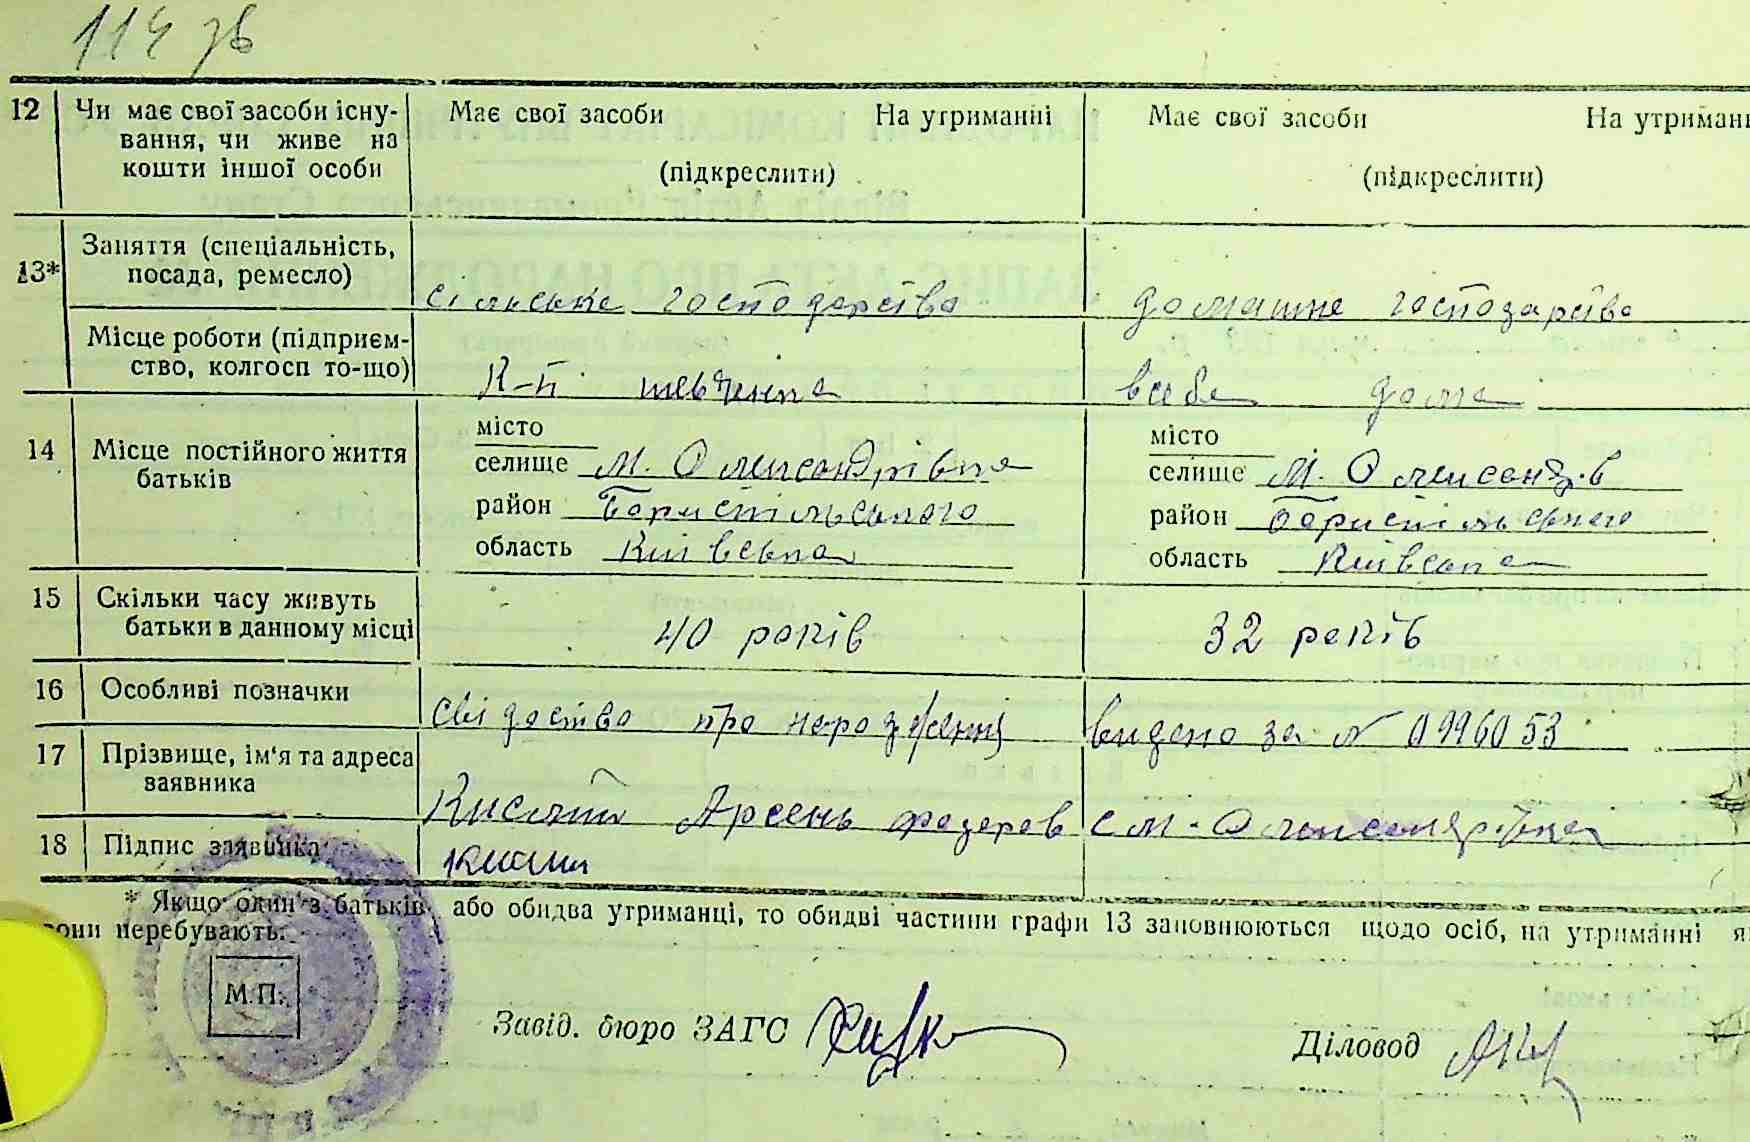 114 зв
12 Чи має свої засоби існу- Має свої засоби На утриманні Має свої засоби На утриманн
вання, чи живе на
кошти іншої особи (підкреслити) (підкреслити)
13* Заняття (спеціальність,
посада, ремесло) сільське господарство домашне господарство
Місце роботи (підприєм-
ство, колгосп то-що) К-п шевченка в себе дома
14 Місце постійного життя батьків
місто місто
селище М. Олександрівка селище М. Олександрів
район Бориспільського район Бориспільського
область Київська область Київська
15 Скільки часу живуть
батьки в данному місці 40 років 32 років
16 Особливі позначки свідоство про народження видано за № 0996053
17 Прізвище, ім'я та адреса
заявника Арсень федоров с М. Олександрівка
18 Підпис заявника
* Якщо один з батьків, або обидва утриманці, то обидві частини графи 13 заповнюються щодо осіб, на утриманні я
вони перебувають.
М.П.
Завід. бюро ЗАГС Діловод